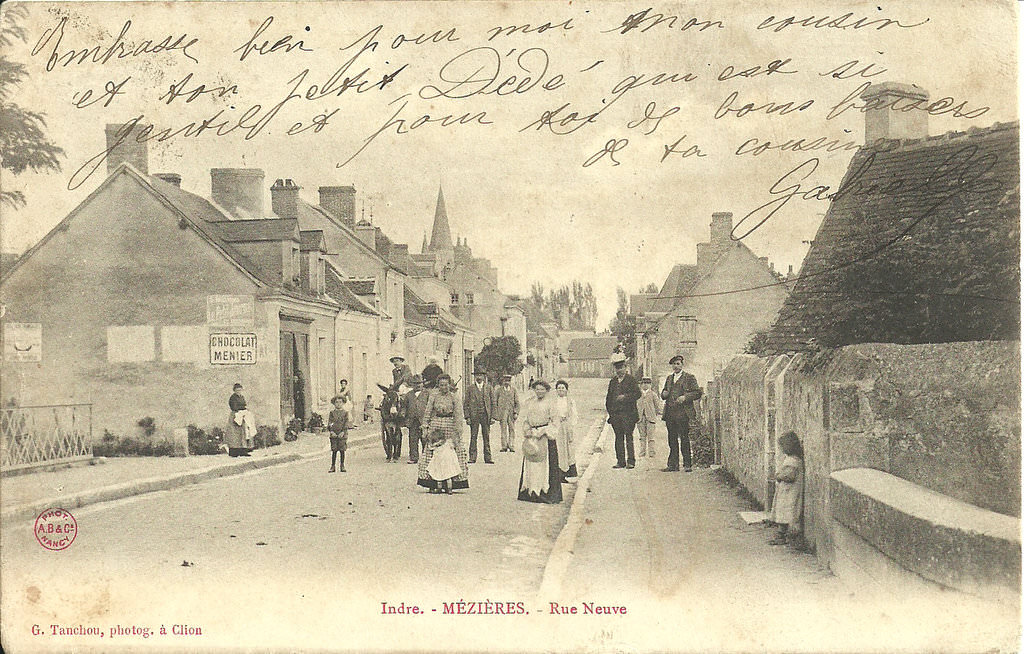 Embrasse bien pour moi Mon cousin
et ton petit Dédé qui est si
gentil et pour toi de bons baisers
de ta cousine
Gabrielle
CHOCOLAT
MENIER
PHOT.
A.B & Cie
NANCY
Indre. - MÉZIÈRES. - Rue Neuve
G. Tanchou, photog. à Clion